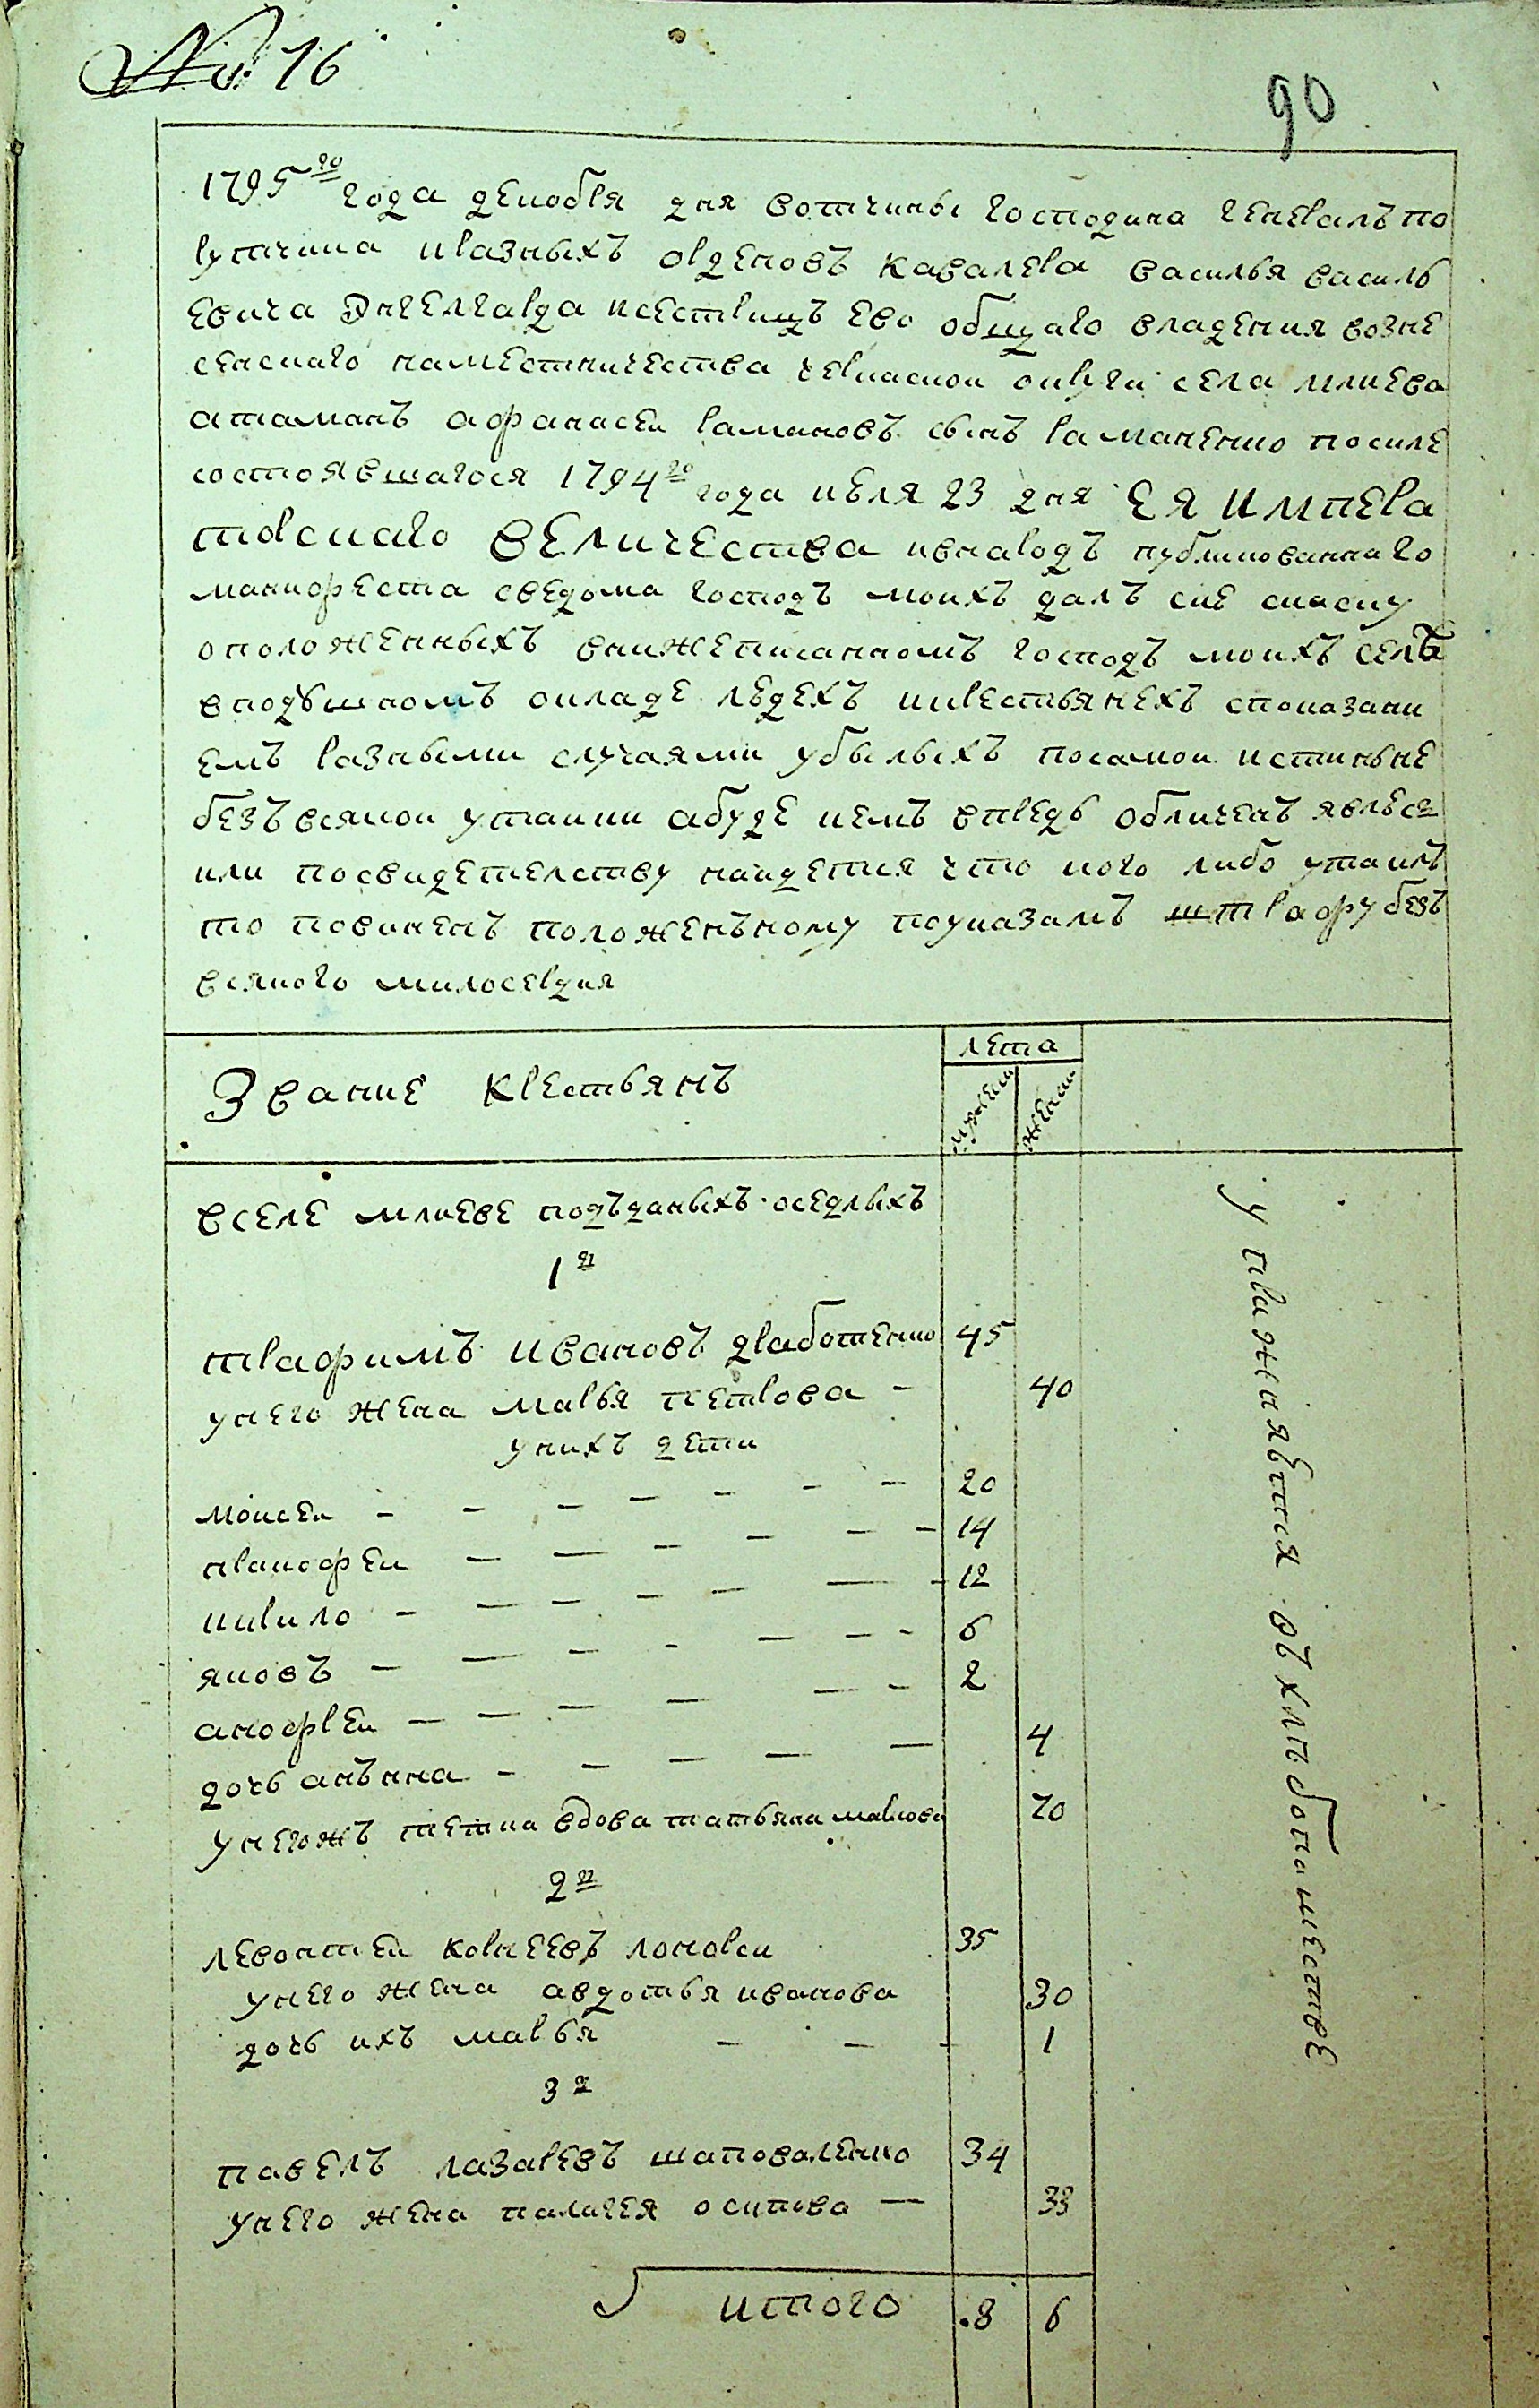 № 16
90
1795го года декобря дня вотчины господина генералъ по
ручика иразныхъ орденовъ кавалера василья василь
евича Энгелгарда исестрицъ ево общаго владения возне
сенскаго наместничества черкаской округи села млиева
атаманъ афанасеи рамановъ сынъ раманенко посиле
состоявшагося 1794го года июля 23 дня ЕЯ ИМПЕРА
торскаго ВЕЛИЧЕства ивнародъ публикованнаго
манифеста сведома господъ моихъ далъ сие скаску
оположенныхъ внижеписанномъ господъ моихъ селѣ
вподушномъ окладе людехъ икрестьянехъ споказани
емъ разными случаями убылыхъ посамои истинъне
безъ всякои утаики абуде кемъ впредь обличенъ явлюся
или посвидетелству наидется что кого либо утаилъ
то повиненъ положенъному поуказамъ штрафу безъ
всякого милосердия
Звание крестьянъ
лета
мужеск
женск
вселе млиеве подъданыхъ оседлыхъ
1я
трафимъ ивановъ дработенко 45
унего жена марья петрова – 40
унихъ дети
моисеи – 20
пракофеи – 14
кирило – 12
яковъ – 6
анофреи – 2
дочь анънна – 4
унегожъ тетка вдова татьяна маркова 70
2я
левонтеи корнеевъ локоси 35
унего жена авдотья иванова 30
дочь ихъ марья – 1
3я
павелъ лазаревъ шаповаленко 34
унего жена палагея осипова – 33
итого 8 6
упражняются въ хлѣбопашестве